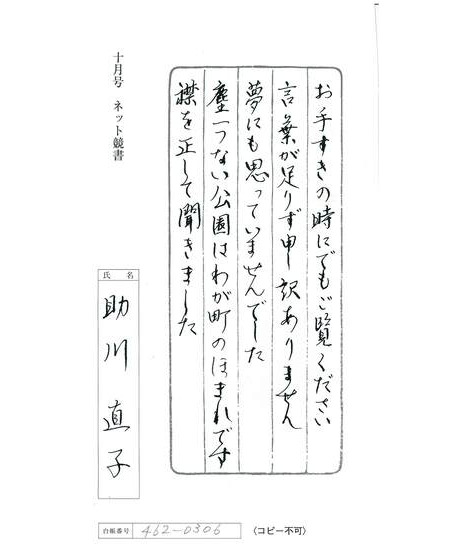 お手すきの時にでもご覧ください
言葉が足りず申し訳ありません
夢にも思っていませんでした
塵一つない公園はわが町のほまれです
襟を正して聞きました
十月号 ネット競書
氏名
助川直子
台帳番号 462-0306
(コピー不可)